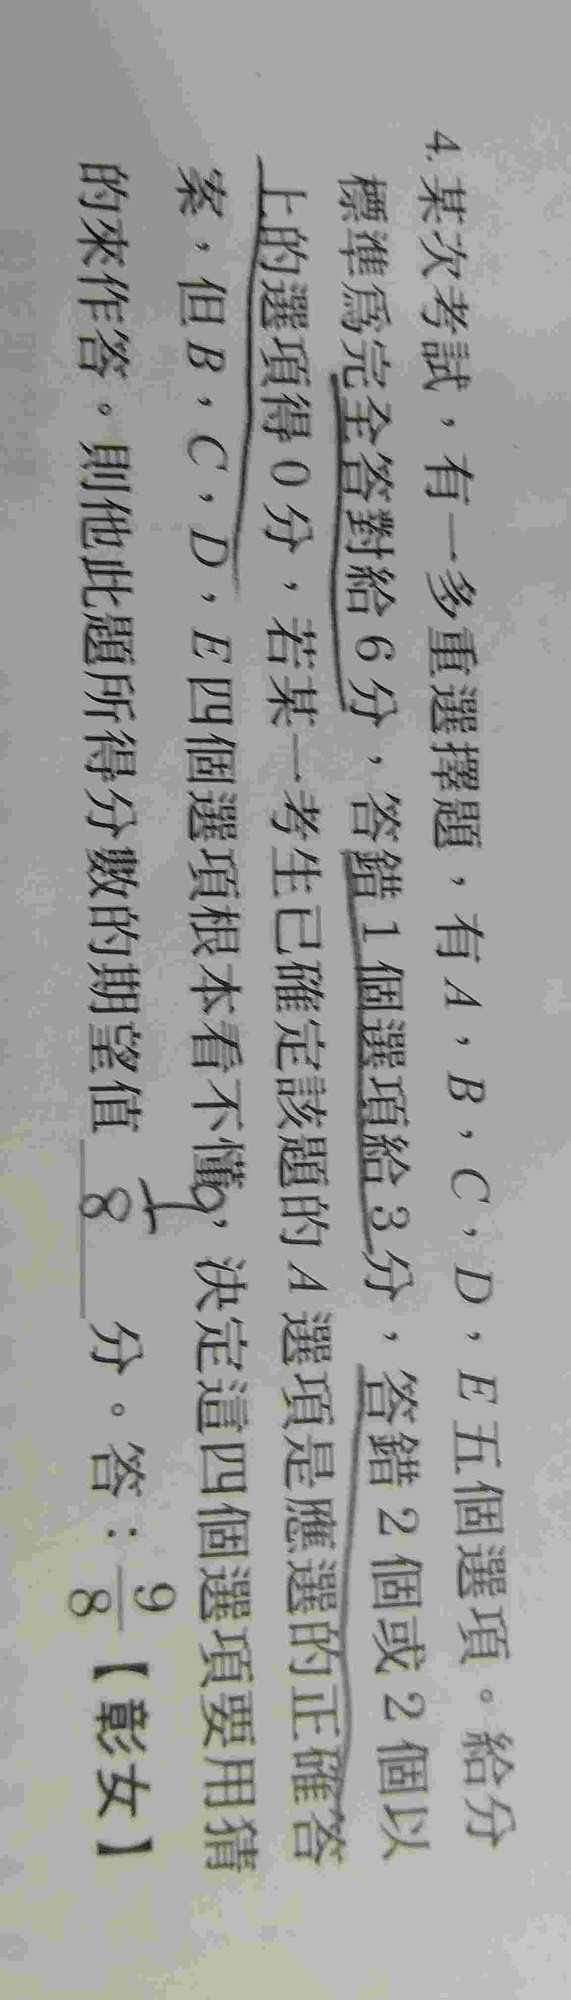 4. 某次考試，有一多重選擇題，有A，B，C，D，E五個選項。給分
標準為完全答對給6分，答錯1個選項給3分，答錯2個或2個以
上的選項得0分，若某一考生已確定該題的A選項是應選的正確答
案，但B，C，D，E四個選項根本看不懂，決定這四個選項要用猜
的來作答。則他此題所得分數的期望值 9/8 分。答：9/8【彰女】